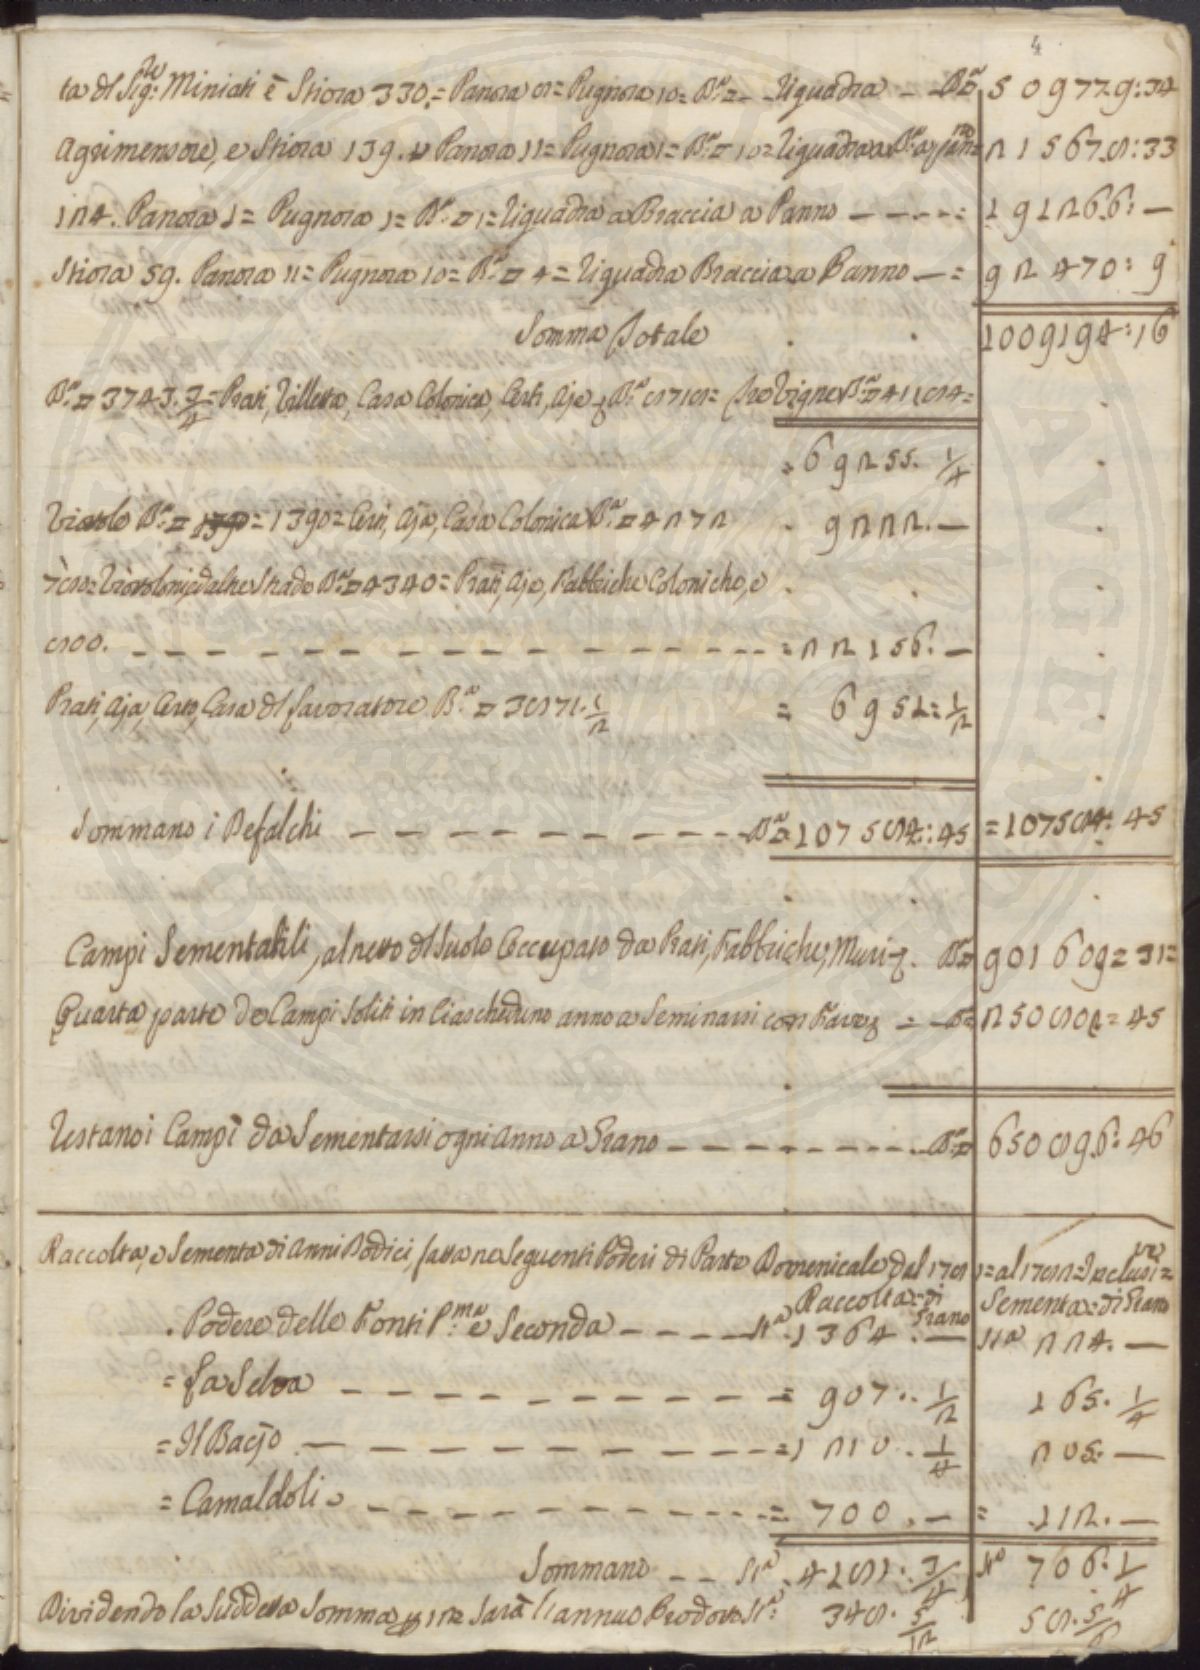 4
ta del Sig:re Miniati è Stiora 330.= Panora 0= Pugnora 10= B.a □ -- riquadra -- B.a □ 509779:34
Agrimensore, e Stiora 139. Panora 11= Pugnora 1= B.a □ 10= riquadra a B.a a pan:no 215678:33
124. Panora 1= Pugnora 1= B.a □ 1= riquadra a Braccia a Panno ----= 191266: —
Stiora 59. Panora 11= Pugnora 10= B.a □ 4= riquadra Braccia a Panno —= 92470: 9
Somma Totale 1009194:16
B.a □ 3743. 3/4= Prati, Villetta, Casa Colonica, Orti, Aje &. B.a 8718= Vigne B.a □ 41184=
= 69255. 1/4
Viottolo B.a □ = 1390= Orti, Aja, Casa Colonica B.a □ 4272 9222. —
780= Viottoloni, ed altre Strade B.a □ 4340= Prati, Aje, Fabbriche Coloniche, e
800. — — — — — — = 22156. —
Prati, Aja, Orto, Casa del Lavoratore B.a □ 3871. 1/2 = 6951= 1/2
Sommano i Defalchi — — — — — B.a □ 107584:45 =107584:45
Campi Sementabili, al netto del Suolo Occupato da Prati, Fabbriche, Muri &. B.a □ 901609=31=
Quarta parte de Campi soliti in Ciascheduno anno a Seminarsi con Fave & = — □= 250802=45
Restano i Campi da Sementarsi ogni anno a Grano — — — — — B.a □ 650806:46
Raccolta, e Sementa di Anni Dodici, fatta ne Seguenti Poderi di Parte Domenicale dal 1781= al 1782= Inclusi=ve
Raccolta= di Grano Sementa= di Grano
. Podere delle Fonti P:ma e Seconda — — — — St.a 1364. — St.a 224. —
= La Selva — — — — — = 907.. 1/2 165. 1/4
= Il Bacjo — — — — — = 1210.. 1/4 205. —
= Camaldoli — — — — — = 700. — = 112. —
Sommano — — St.a 4181. 3/4 St.a 706. 1/4
Dividendo la Suddetta Somma p 12 Sarà l'annuo Prodotto St.a 348. 5/12 58. 5/6